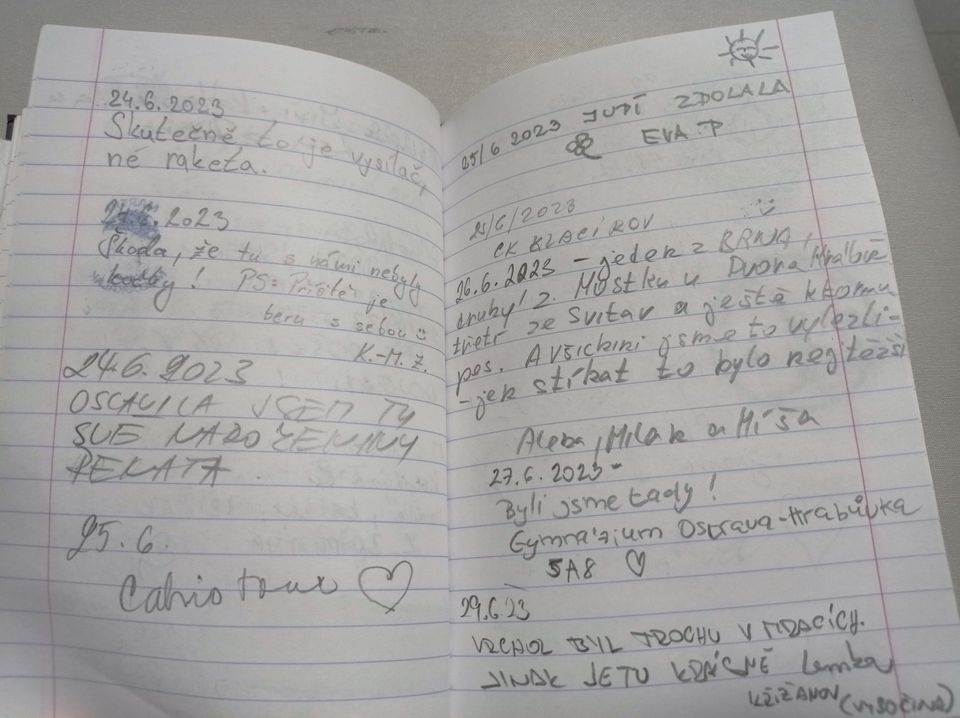 24.6.2023
Skutečně to je vysílač,
né raketa.
24.6.2023
Škoda, že tu s námi nebyly
kočky! PS: Příště je
beru s sebou
K.-M. Ž.
24.6.2023
OSLAVILA JSEM TU
SVÉ NAROZENINY
RENATA
25.6.
Cabrio tour
25/6 2023 JUPÍ ZDOLALA
EVA :P
25/6/2023
CK
26.6.2023 - jeden z BRNA,
druhý z Mostku u Dvora Králové
třetí ze Svitav a ještě k tomu
pes. A všichni jsme to vylezli -
- jen strkat to bylo nejtěžší
Milan a Míša
27.6.2023 -
Byli jsme tady!
Gymnázium Ostrava-Hrabůvka
5A8
29.6.23
VRCHOL BYL TROCHU V MRACÍCH.
JINAK JE TU KRÁSNĚ Lenka
KŘIŽANOV (VYSOČINA)